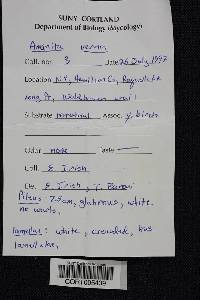 SUNY CORTLAND
Department of Biology (Mycology)
Amanita verna
Coll. no: 3 Date 26 July 1992
Location N.Y., Hamilton Co,
Long Pt,
Substrate terrestrial Assoc. y. birch
Odor none Taste
Coll. E. Irish
Det. E. Irish, T. Baroni
Pileus 7.5cm, glabrous, white
no warts,
lamellae: white, crowded, has
lamellulae,
CORT005439